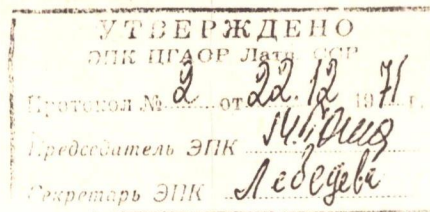 УТВЕРЖДЕНО
ЭПК ЦГАОР Латв. ССР
Протокол № 2 от 22.12 1971 г.
Председатель ЭПК
Секретарь ЭПК Лебедева